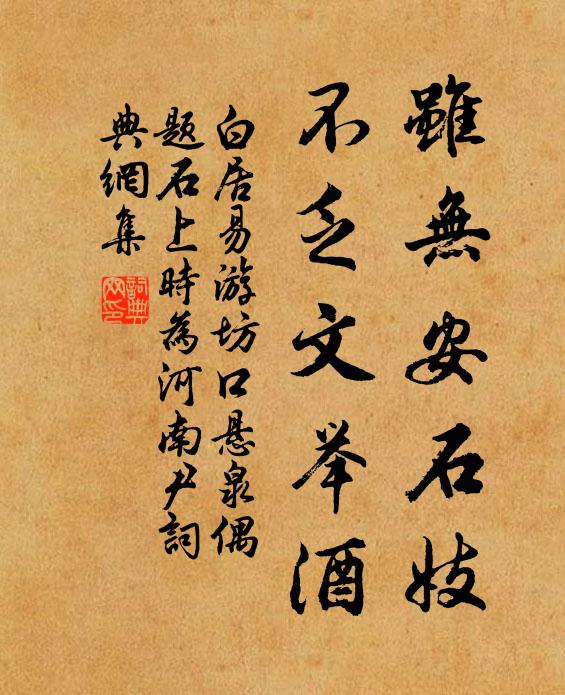 雖無安石妓
不乏文举酒
白居易游坊口悬泉偶
题石上時為河南尹詞
典網集
詞典网印